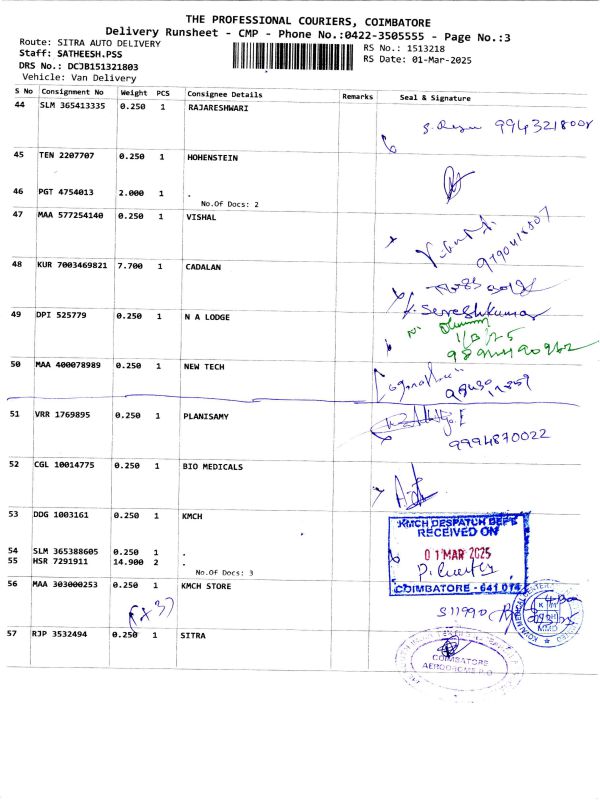 THE PROFESSIONAL COURIERS, COIMBATORE
Delivery Runsheet - CMP - Phone No.:0422-3505555 - Page No.:3
Route: SITRA AUTO DELIVERY
RS No.: 1513218
Staff: SATHEESH.PSS
RS Date: 01-Mar-2025
DRS No.: DCJB151321803
Vehicle: Van Delivery
S No Consignment No Weight PCS Consignee Details Remarks Seal & Signature
44 SLM 365413335 0.250 1 RAJARESHWARI
9943218008
45 TEN 2207707 0.250 1 HOHENSTEIN
46 PGT 4754013 2.000 1 .
No.Of Docs: 2
47 MAA 577254140 0.250 1 VISHAL
48 KUR 7003469821 7.700 1 CADALAN
49 DPI 525779 0.250 1 N A LODGE
50 MAA 400078989 0.250 1 NEW TECH
51 VRR 1769895 0.250 1 PLANISAMY
9994870022
52 CGL 10014775 0.250 1 BIO MEDICALS
53 DDG 1003161 0.250 1 KMCH
KMCH DESPATCH DEPT
RECEIVED ON
01 MAR 2025
COIMBATORE - 641 014
54 SLM 365388605 0.250 1 .
55 HSR 7291911 14.900 2 .
No.Of Docs: 3
56 MAA 303000253 1 KMCH STORE
(x3)
S11990
57 RJP 3532494 0.250 1 SITRA
COIMBATORE
AERODROME P.O